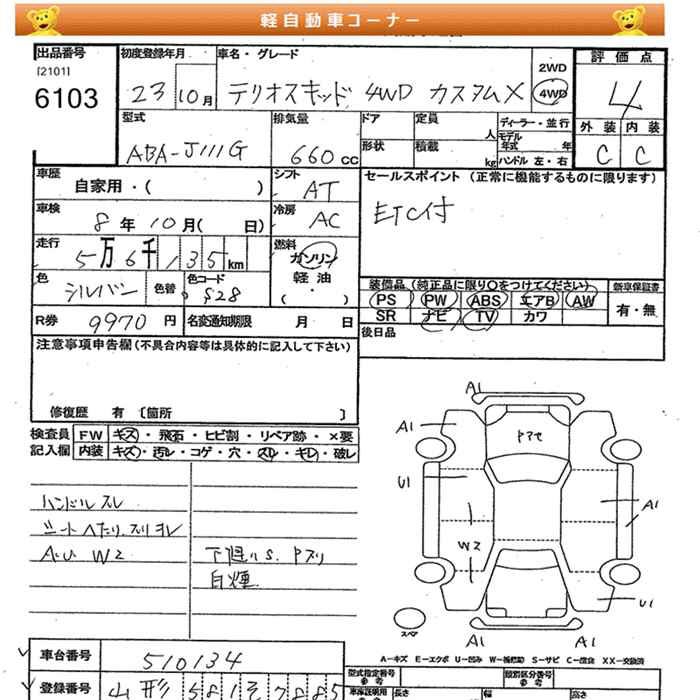 軽自動車コーナー
出品番号 初度登録年月 車名・グレード 評価点
[2101]
6103 23 10月 テリオスキッド 4WD カスタムX 2WD 4WD 4
外装 内装
C C
型式 排気量 ドア 定員 人 ディーラー・並行
ABA-J111G 660cc 形状 積載 kg モデル年式 年
ハンドル 左・右
車歴 自家用・( ) シフト AT
セールスポイント(正常に機能するものに限ります)
ETC付
車検 8年10月( 日) 冷房 AC
走行 5万6千135km 燃料 ガソリン
軽油
・( )
色 シルバー 色替 色コード S28
装備品(純正品に限り○をつけてください) 新車保証書
PS PW ABS エアB AW 有・無
SR ナビ TV カワ
R券 9970円 名変通知期限 月 日
後日品
注意事項申告欄(不具合内容等は具体的に記入して下さい)
修復歴 有 〔箇所 〕
検査員 FW キズ・飛石・ヒビ割・リペア跡・×要
記入欄 内装 キズ・汚レ・コゲ・穴・スレ・キレ・破レ
ハンドルスレ
シートヘタリ、スリ ヨレ
A.U W2 下廻りS、Pズリ
白煙
A1
A1
Pアセ
U1
A1
W2
U1
スペア
A1 A1
A-キズ E-エクボ U-凹み W-補修跡 S-サビ C-腐食 XX-交換済
車台番号 510134 型式指定番号 参考 類別区分番号 参考
登録番号 山形 581 7885 車検証明用 長さ 幅 高さ